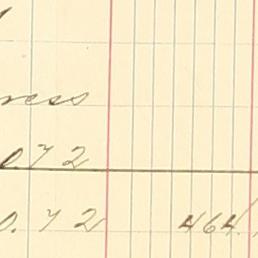 ress
0.72
0.72 464.